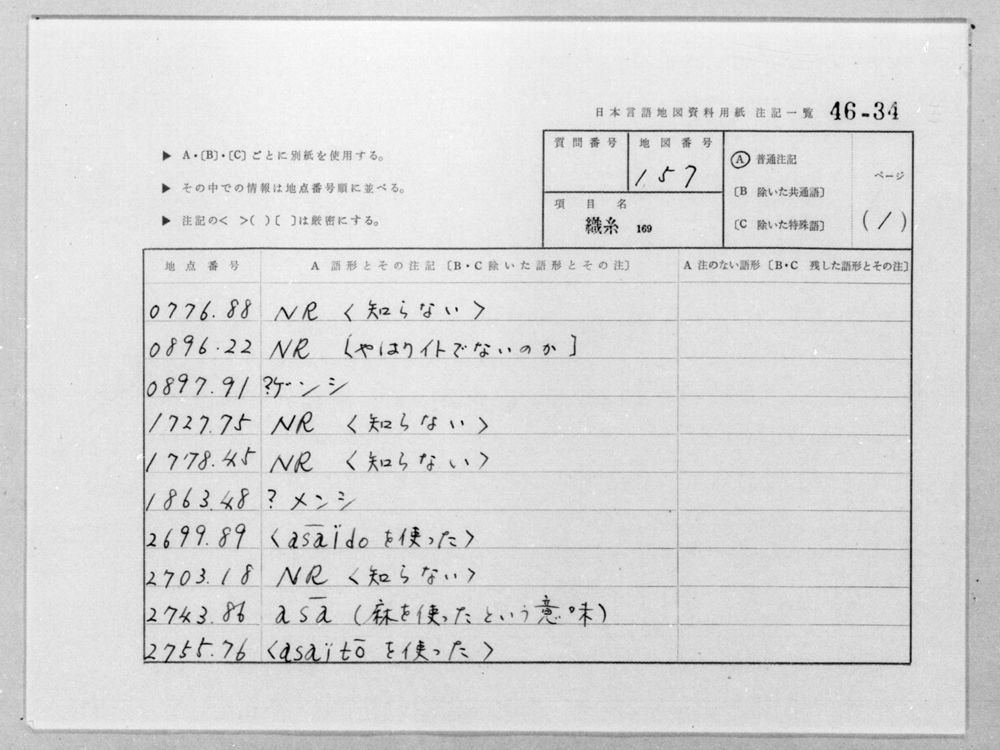 日本言語地図資料用紙 注記一覧 46-34
▶ A・〔B〕・〔C〕ごとに別紙を使用する。
▶ その中での情報は地点番号順に並べる。
▶ 注記の< >( )〔 〕は厳密にする。
質問番号 地図番号
157
項目名
織糸 169
Ⓐ 普通注記
〔B 除いた共通語〕
〔C 除いた特殊語〕
ページ
(1)
地点番号 A 語形とその注記〔B・C除いた語形とその注〕 A 注のない語形〔B・C 残した語形とその注〕
0776.88 NR <知らない>
0896.22 NR 〔やはりイトでないのか〕
0897.91 ?ゲンシ
1727.75 NR <知らない>
1778.45 NR <知らない>
1863.48 ? メンシ
2699.89 <asāïdo を使った>
2703.18 NR <知らない>
2743.86 asā (麻を使ったという意味)
2755.76 <asaïtō を使った>